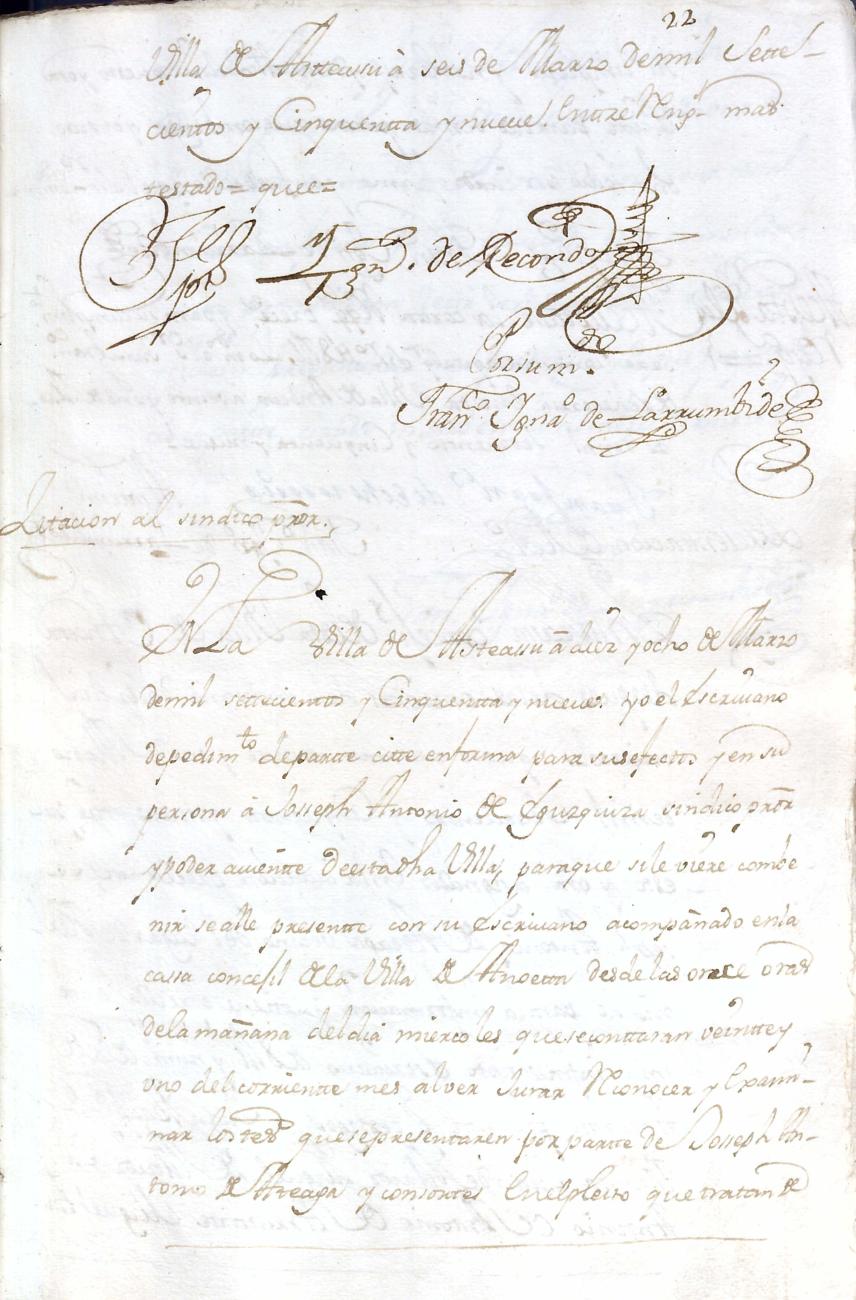 22
Villa de Astteasu à seis de Marzo demil Sette-
cientos y Cinquentta y nueve. Entre Rengs mas
testado = quee =
de Recondo
Por su m.
Franco Ignao de Larrumbide
Zitacion al sindico pror.
En La Villa de Asteassu â diez y ocho de Marzo
demil settecientos y Cinquentta y nueve: yo el Escrivano
de pedimto de partte citte enforma para sus efectos y en su
persona â Joseph Antonio de Eguzquiza sindico pror
y poder avientte de esta dha Villa, para que si le viere combe
nir se alle presentte con su Escrivano acompañado en la
cassa concejil de la Villa de Anoetta desde las onze oras
de la mañana del dia miercoles que se conttaran veintte y
uno del corriente mes al ver Jurar Reconocer y Exami-
nar los tesos que se presentaren por partte de Joseph An-
tonio de Arteaga y consortes En el pleito que tratan de